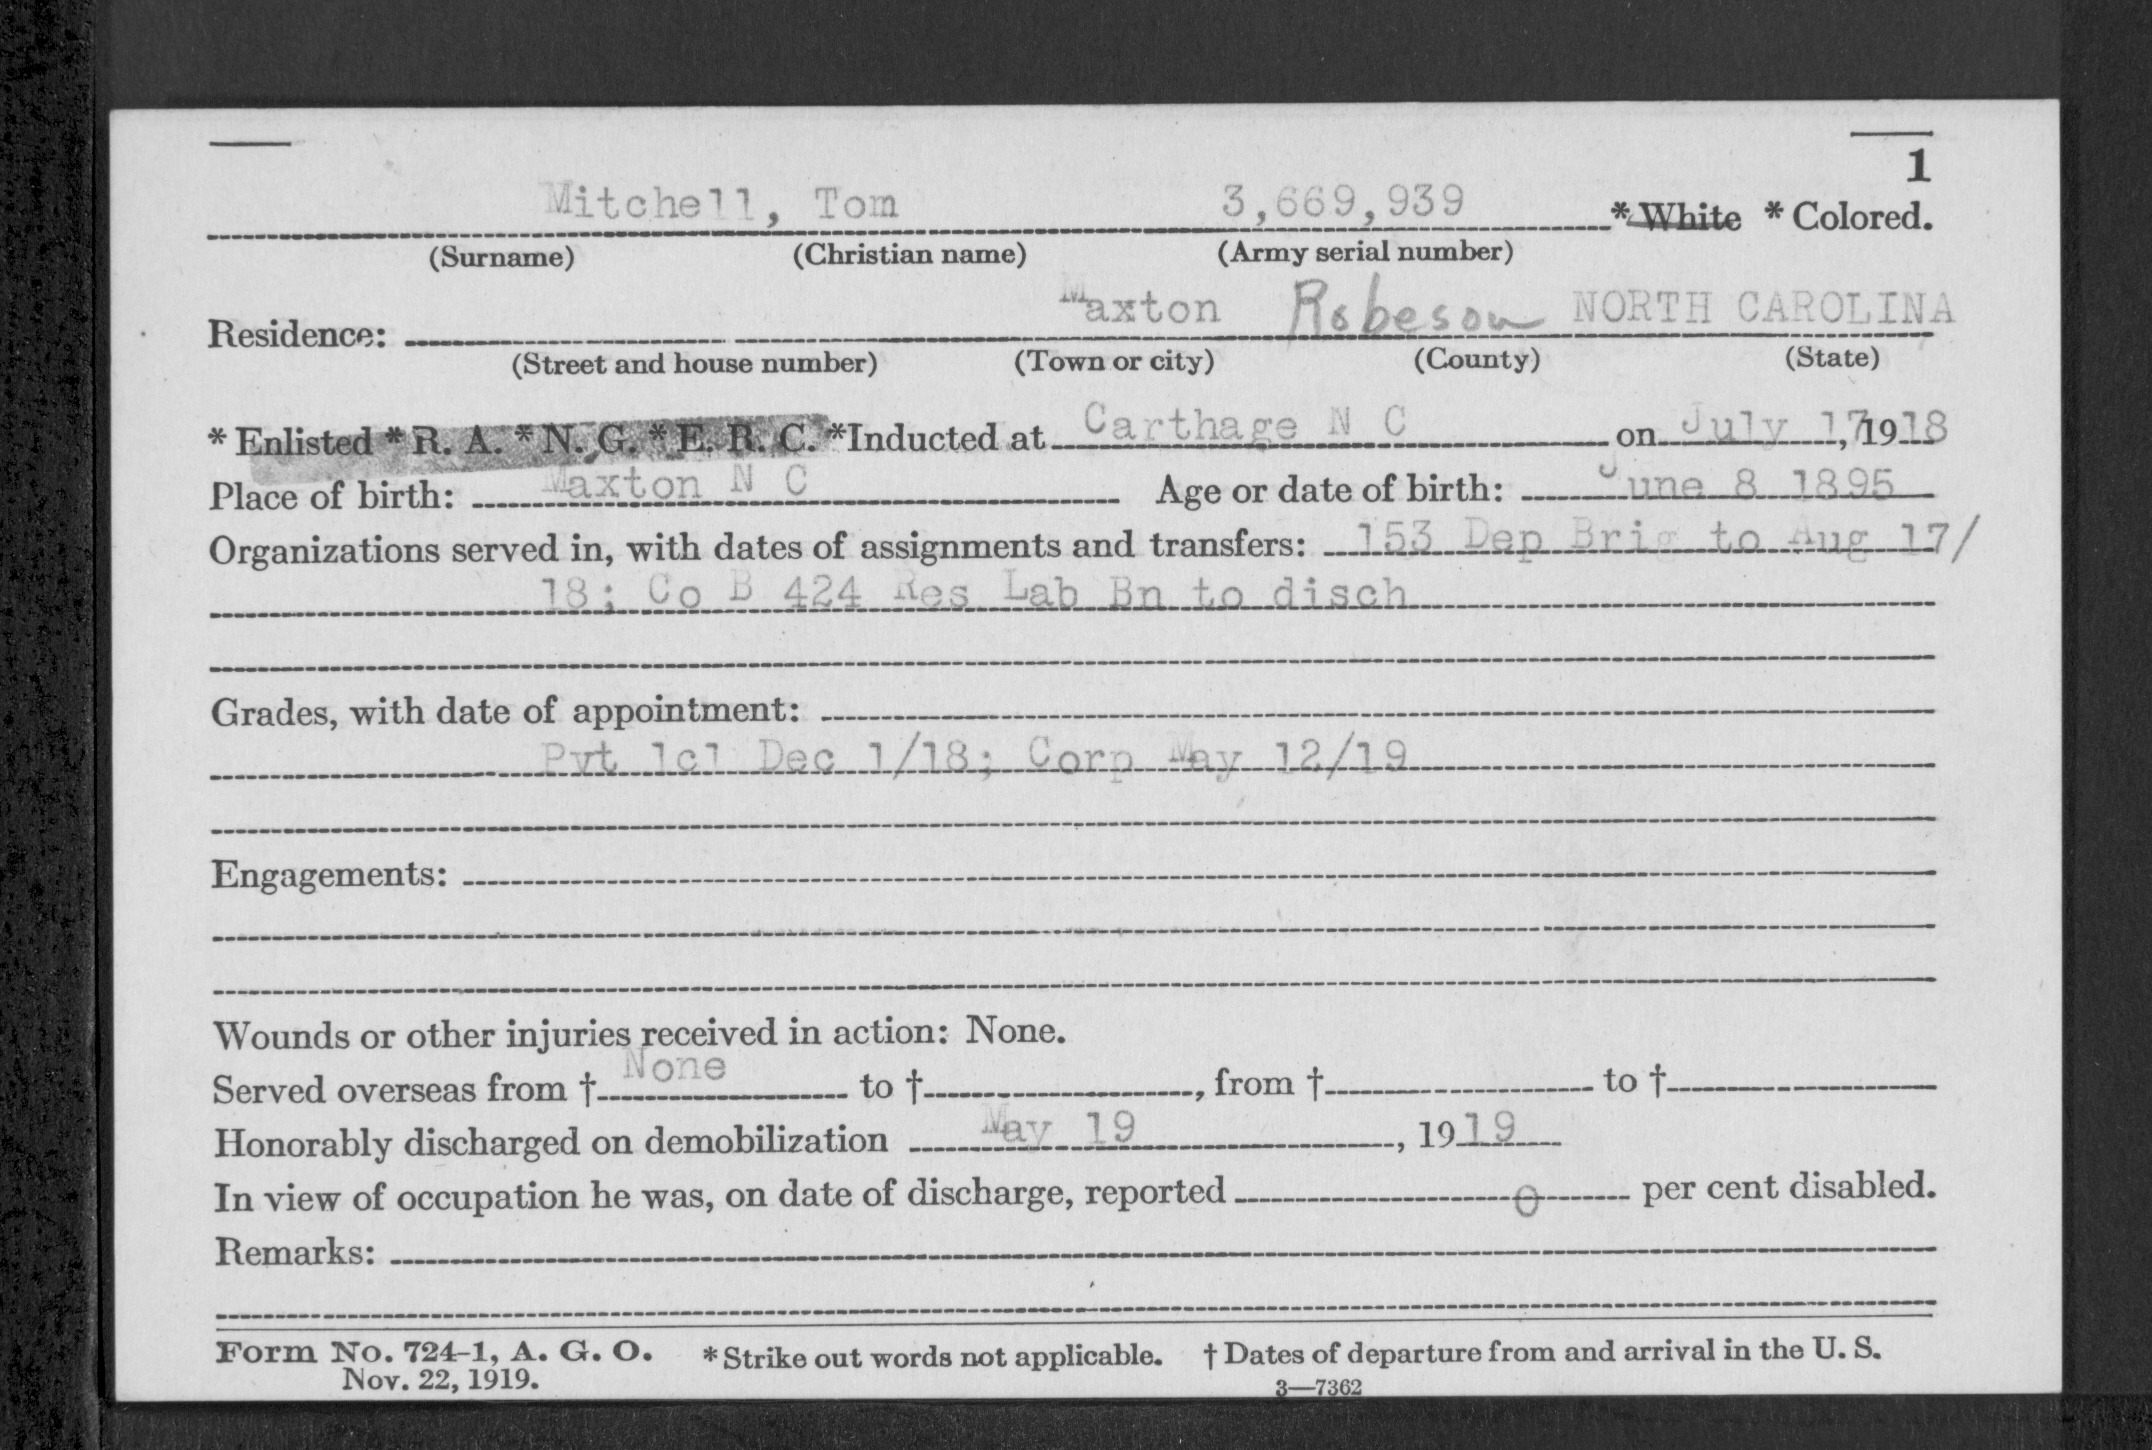 1
Mitchell, Tom 3,669,939 * White * Colored.
(Surname) (Christian name) (Army serial number)
Residence: Maxton Robeson NORTH CAROLINA
(Street and house number) (Town or city) (County) (State)
* Enlisted * R. A. * N. G. * E. R. C. *Inducted at Carthage N C on July 17, 1918
Place of birth: Maxton N C Age or date of birth: June 8 1895
Organizations served in, with dates of assignments and transfers: 153 Dep Brig to Aug 17/
18; Co B 424 Res Lab Bn to disch
Grades, with date of appointment:
Pvt 1cl Dec 1/18; Corp May 12/19
Engagements:
Wounds or other injuries received in action: None.
Served overseas from † None to †, from † to †
Honorably discharged on demobilization May 19, 1919
In view of occupation he was, on date of discharge, reported 0 per cent disabled.
Remarks:
Form No. 724-1, A. G. O. * Strike out words not applicable. † Dates of departure from and arrival in the U. S.
Nov. 22, 1919. 3—7362